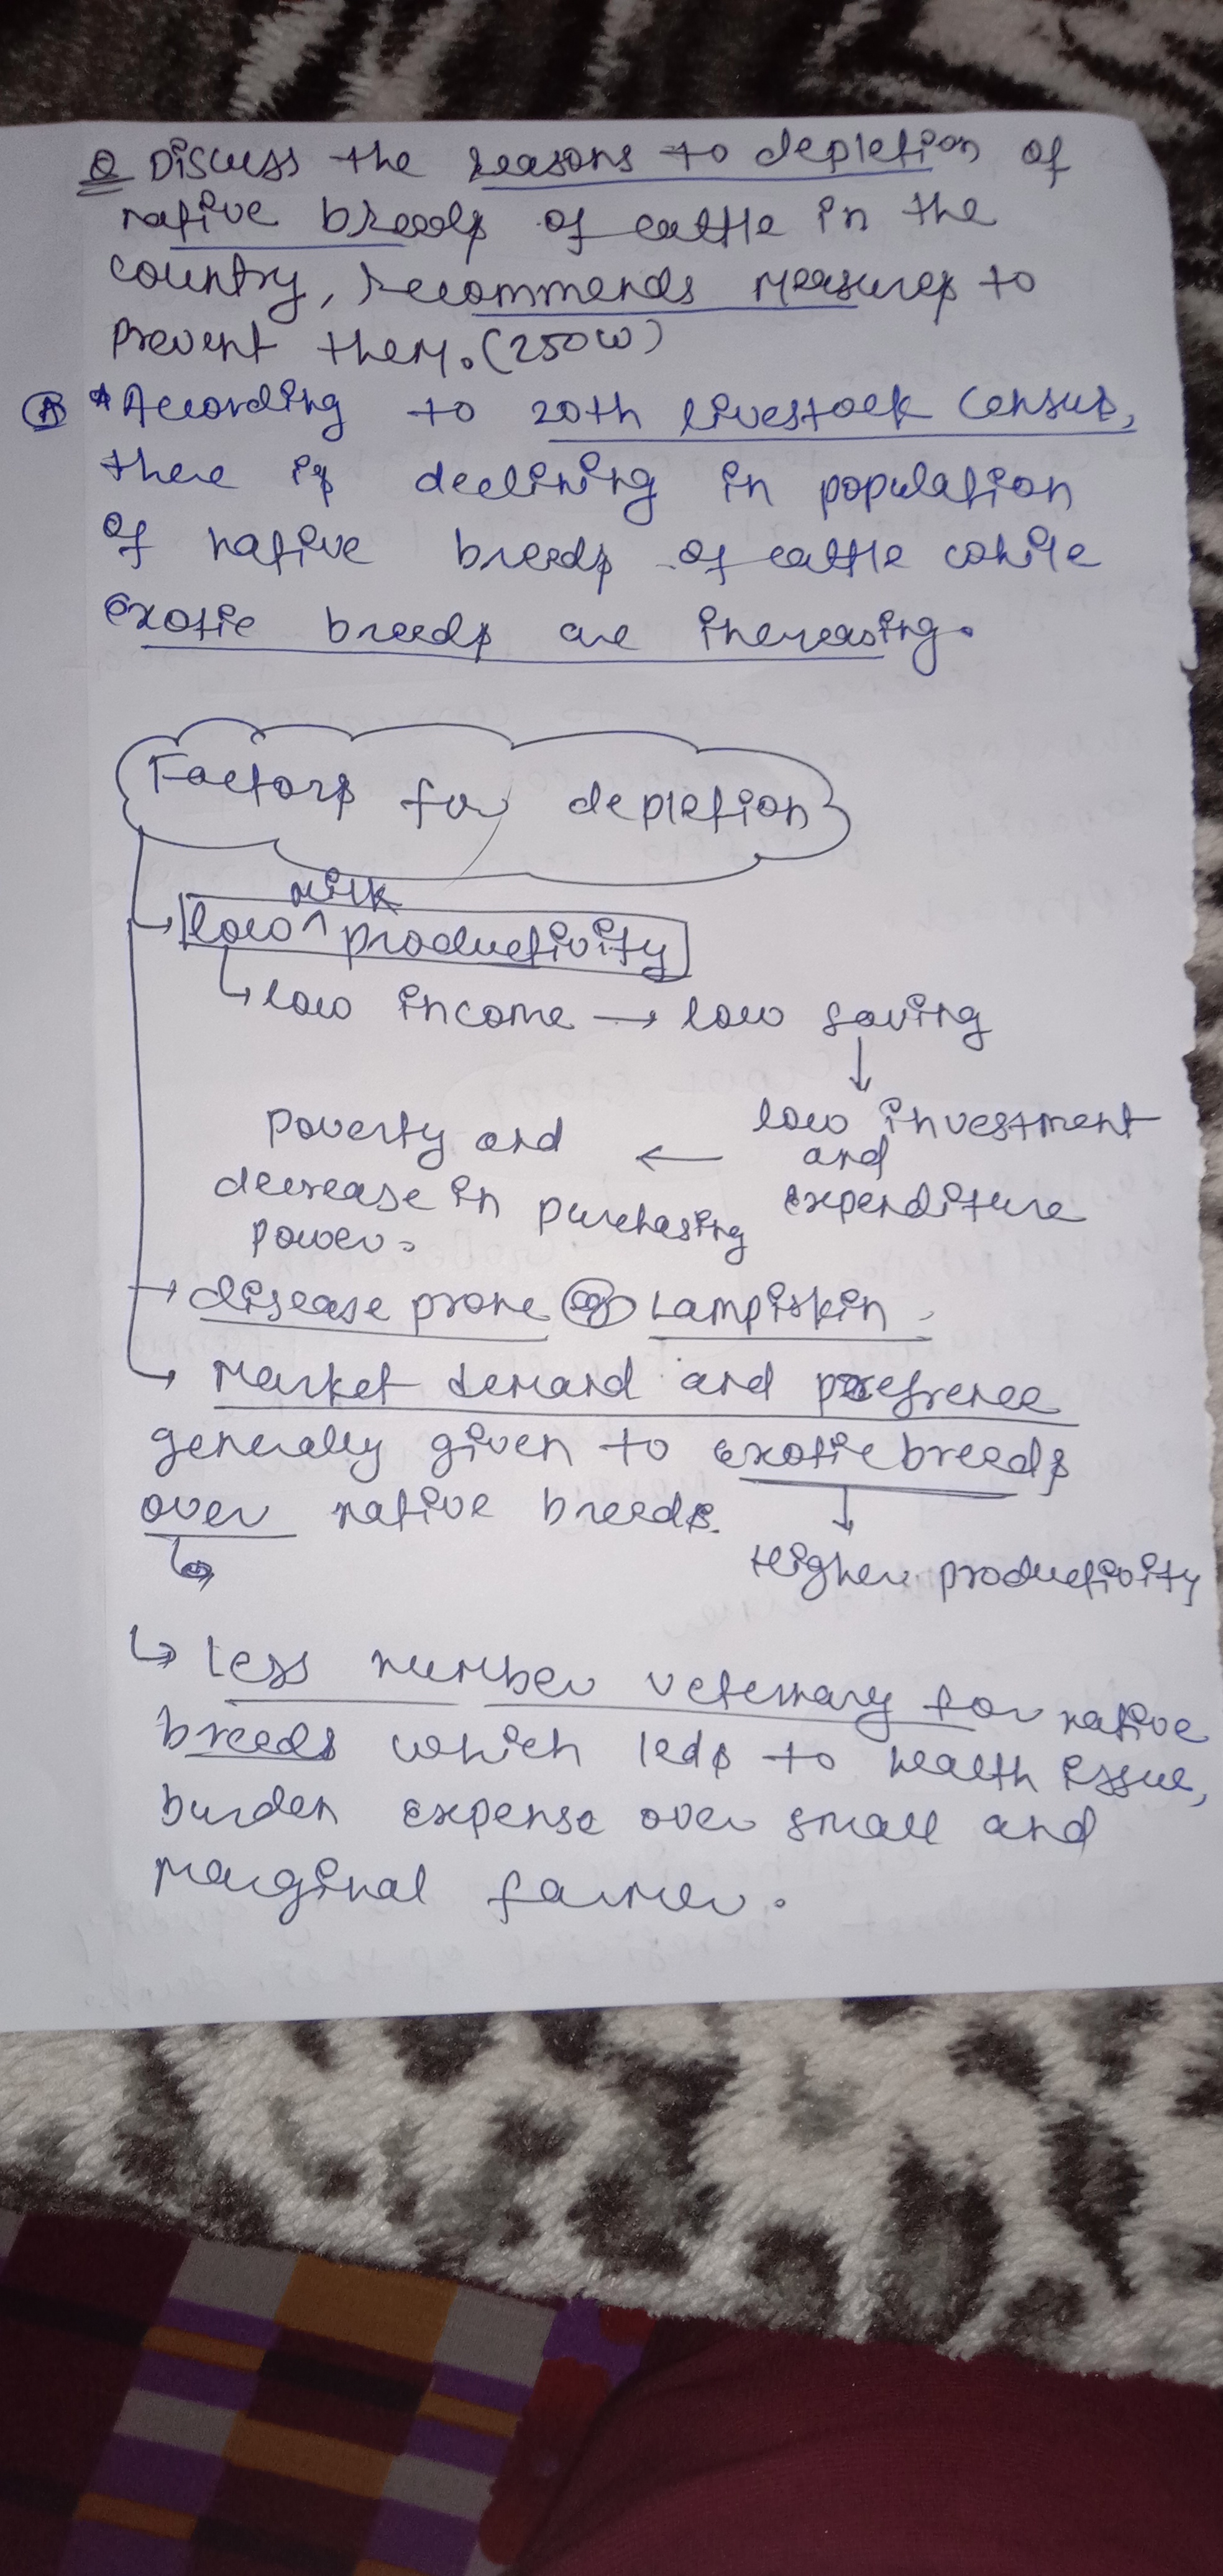 Q Discuss the reasons to depletion of
native breeds of cattle in the
country, recommends measures to
prevent them. (250w)
A * According to 20th livestock census,
there is declining in population
of native breeds of cattle while
exotic breeds are increasing.
Factors for depletion
→ low ^ milk productivity
↳ low income → low saving
↓
low investment
and
expenditure
←
Poverty and
decrease in purchasing
power.
→ disease prone eg Lampiskin.
↳ Market demand and prefrence
generally given to exotic breeds
over native breeds.
↓
Higher productivity
↳ Less number veternary for native
breeds which leds to health issue,
burden expense over small and
marginal farmer.